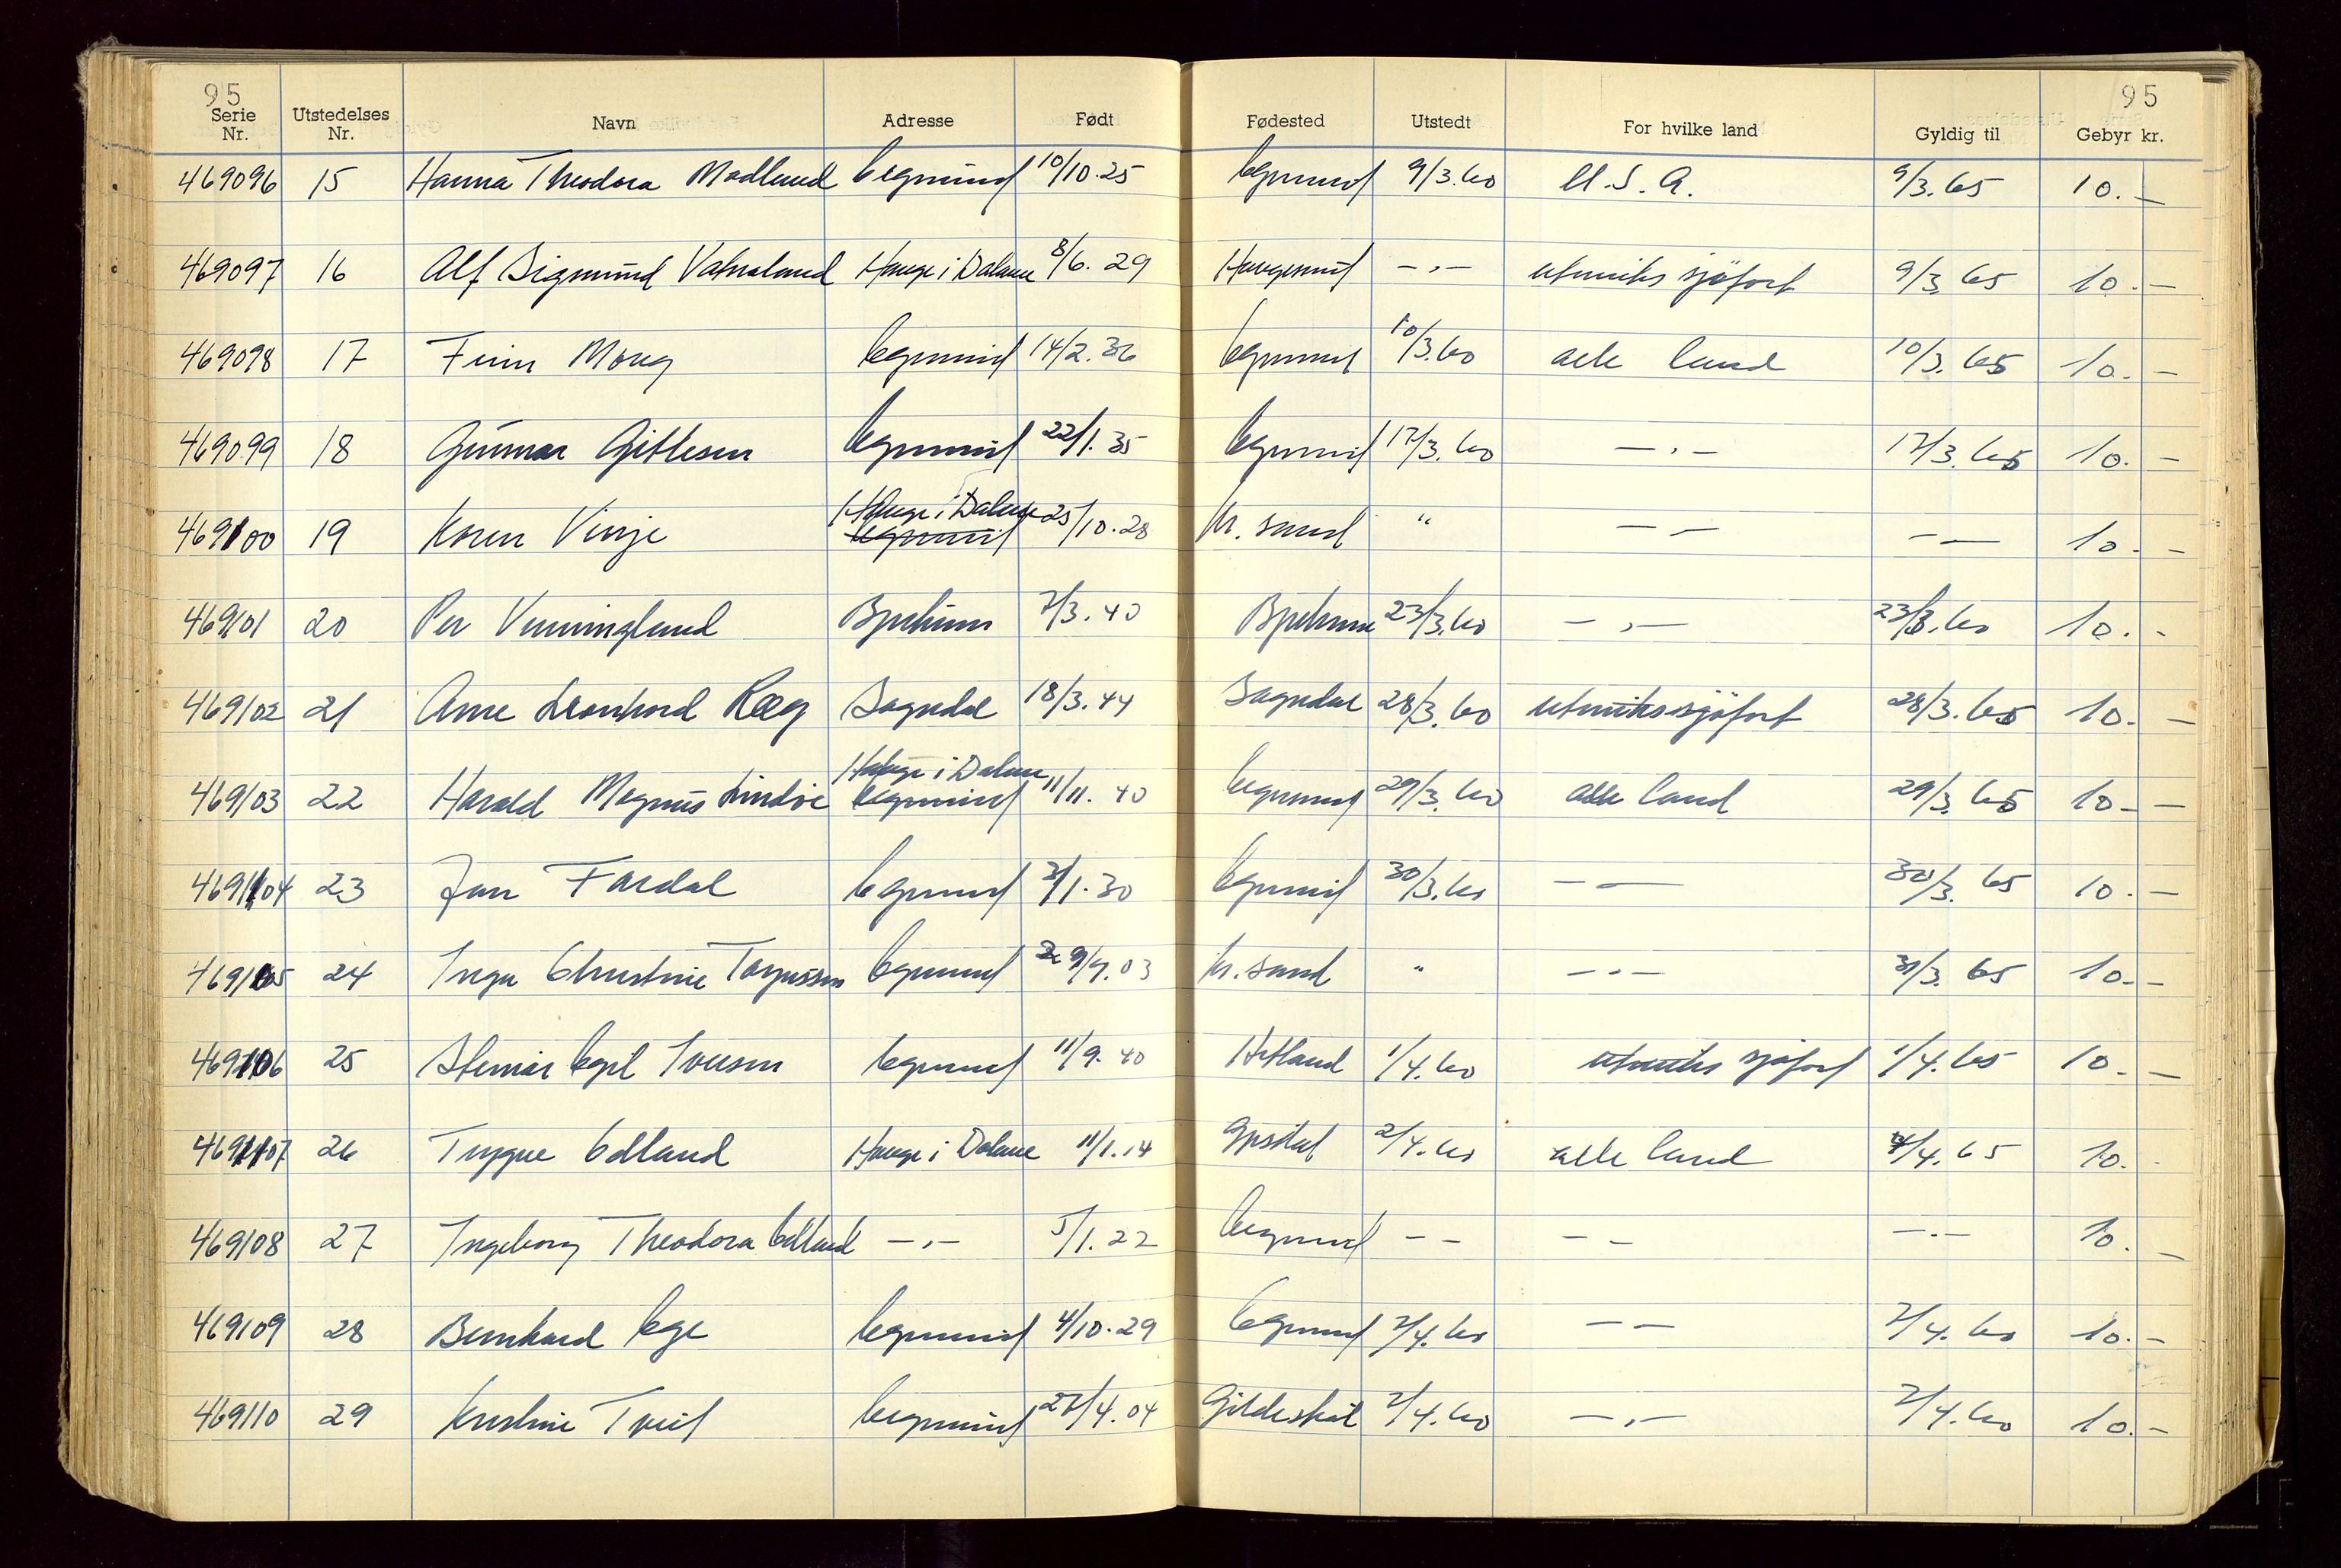 95 95
Serie Nr. Utstedelses Nr. Navn Adresse Født Fødested Utstedt For hvilke land Gyldig til Gebyr kr.
469096 15 Hanna Theodora Modland Egersund 10/10.25 Egersund 9/3.60 U.S.A. 9/3.65 10.—
469097 16 Alf Sigmund Vatnaland Hauge i Dalane 8/6.29 Haugesund —"— utenriks sjöfart 9/3.65 10.—
469098 17 Finn Mong Egersund 14/2.36 Egersund 10/3.60 alle land 10/3.65 10.—
469099 18 Gunnar Gitlesen Egersund 22/1.35 Egersund 17/3.60 —"— 17/3.65 10.—
469100 19 Karen Vinje Hauge i Dalane Egersund 25/10.28 Kr.sand " — — — — 10.—
469101 20 Per Venningland Bjerkreim 7/3.40 Bjerkreim 23/3.60 —"— 23/3.60 10.-
469102 21 Arne Leonhard Ræg Sogndal 18/3.44 Sogndal 28/3.60 utenriks sjöfart 28/3.65 10.—
469103 22 Harald Magnus Lindöe Hauge i Dalane Egersund 11/11.40 Egersund 29/3.60 alle land 29/3.65 10.—
469104 23 Jan Fardal Egersund 3/1.30 Egersund 30/3.60 — — 30/3.65 10.—
469105 24 Inga Christine Torgussen Egersund 9/9.03 Kr.sand " —"— 31/3.65 10.—
469106 25 Steinar Egil Iversen Egersund 11/9.40 Hetland 1/4.60 utenriks sjöfart 1/4.65 10.—
469107 26 Trygve Edland Hauge i Dalane 11/1.14 Gjesdal 2/4.60 alle land 4/4.65 10.-
469108 27 Ingeborg Theodora Edland —"— 5/1.22 Egersund — — — — —"— 10.—
469109 28 Bernhard Ege Egersund 4/10.29 Egersund 7/4.60 — — 7/4.60 10.—
469110 29 Kristine Tveit Egersund 27/4.04 Gildeskål 7/4.60 —"— 7/4.60 10.—